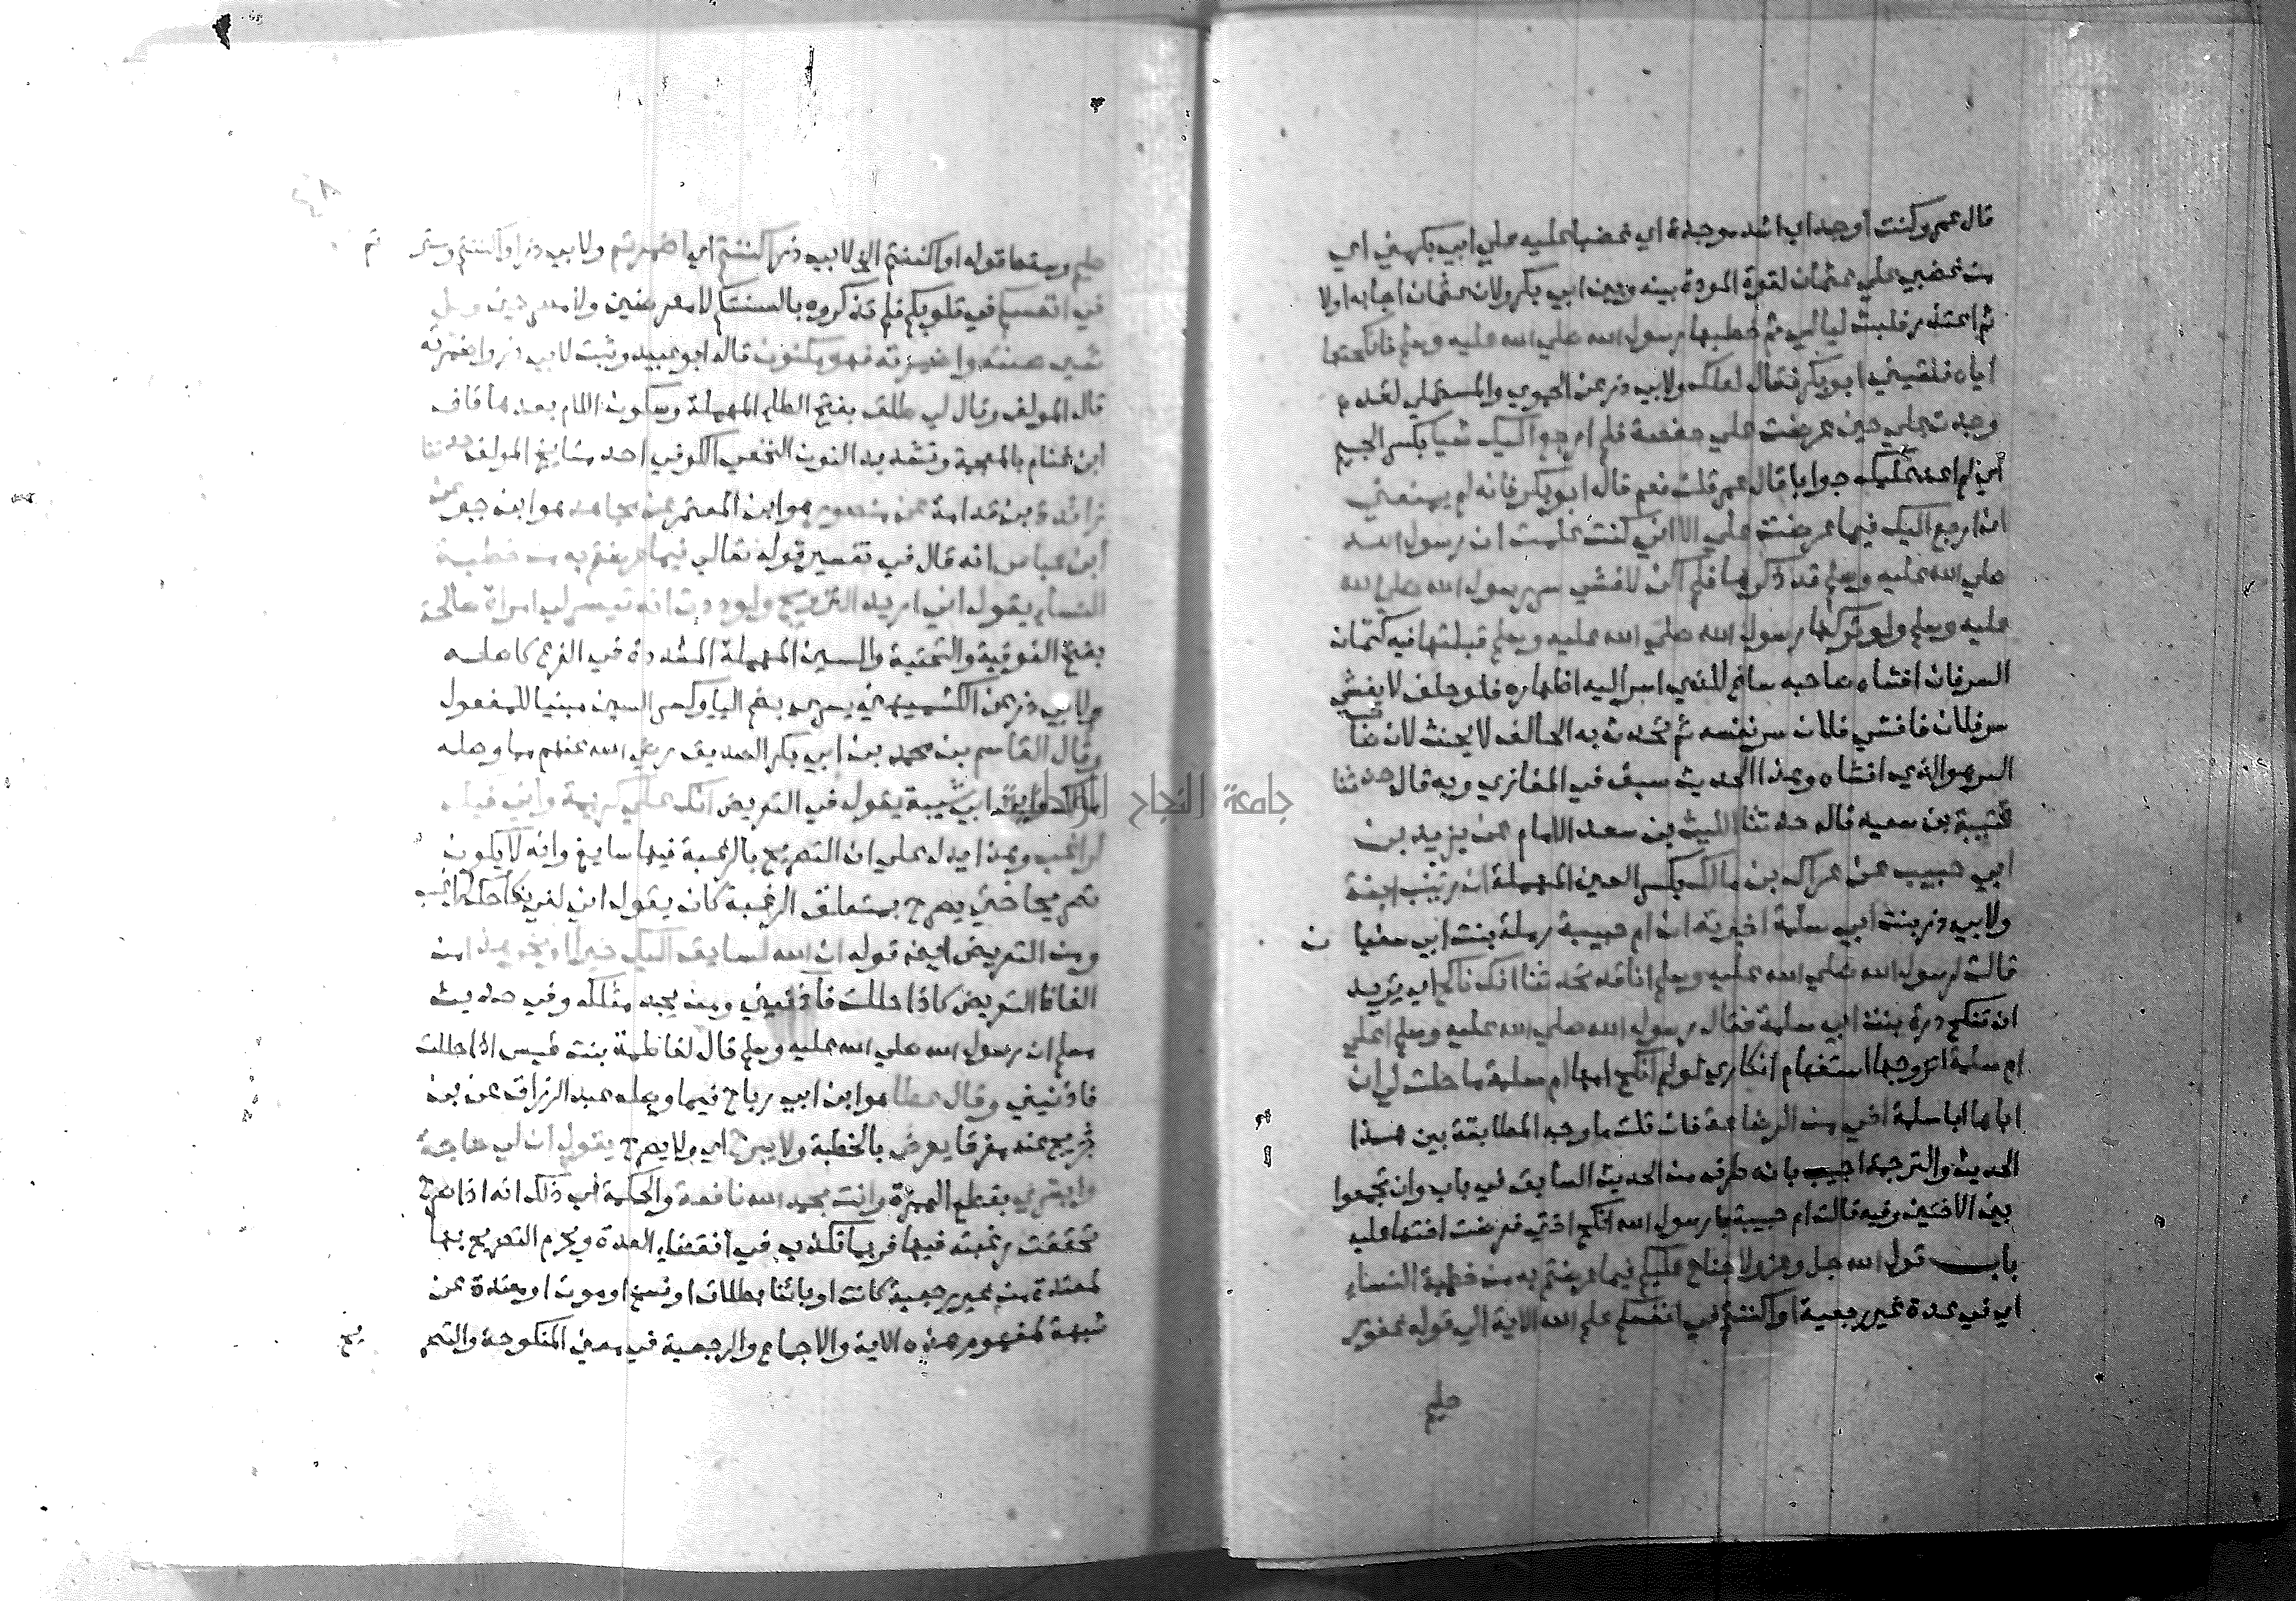 قال عمر وكنت أوجد اي اشد موجدة اي غضبا عليه علي ابي بكر مني اي
من غضبي علي عثمان لقوة المودة بينه وبين ابي بكر ولان عثمان اجابه اولا
ثم اعتذر فلبثت ليالي ثم خطبها رسول الله صلي الله عليه وسلم فانكحتها
اياه فلقيني ابو بكر فقال لعلك ولابي ذر عن الحموي والمستملي لقد
وجدت علي حين عرضت علي حفصة فلم ارجع اليك شيا بكسر الجيم
أي لم اعد عليك جوابا قال عمر قلت نعم قال ابو بكر فانه لم يمنعني
ان ارجع اليك فيما عرضت علي الا اني كنت علمت ان رسول الله
صلي الله عليه وسلم قد ذكرها فلم اكن لافشي سر رسول الله صلي الله
عليه وسلم ولو تركها رسول الله صلي الله عليه وسلم قبلتها فيه كتمان
السر فان افشاه صاحبه ساغ للذي اسر اليه اظهاره فلو حلف لا يفشي
سر فلان فافشي فلان سر نفسه ثم تحدث به الحالف لا يحنث لان
السر هو الذي افشاه وهذا الحديث سبق في المغازي وبه قال حدثنا
قتيبة بن سعيد قال حدثنا الليث بن سعد الامام عن يزيد بن
ابي حبيب عن عراك بن مالك بكسر العين المهملة ان زينب ابنة
ولابي ذر بنت ابي سلمة اخبرته ان ام حبيبة رملة بنت ابي سفيا ن
قالت لرسول الله صلي الله عليه وسلم انا قد تحدثنا انك ناكح اي تريد
ان تنكح درة بنت ابي سلمة فقال رسول الله صلي الله عليه وسلم اعلي
ام سلمة اتزوجها استفهام انكاري لو لم انكح امها ام سلمة ما حلت لي ان
اباها ابا سلمة اخي من الرضاعة فان قلت ما وجه المطابقة بين هذا
الحديث والترجمة اجيب بانه طرف من الحديث السابق في باب وان تجمعوا
بين الاختين وفيه قالت ام حبيبة يا رسول الله انكح اختي فعرضت اختها عليه
باب قول الله جل وعز ولا جناح عليكم فيما عرضتم به من خطبة النساء
اي في عدة غير رجعية او اكننتم في انفسكم علم الله الاية الي قوله غفور
حليم
حليم وسقط قوله او اكننتم الخ لابي ذر اكننتم اي اضمرتم ولابي ذر او اكننتم وستر تم
في انفسكم في قلوبكم فلم تذكروه بالسنتكم لا معرضين ولا مصرحين وكل
شي صنته واضمرته فهو مكنون قاله ابو عبيد وثبت لابي ذر واضمرته
قال المولف وقال لي طلق بفتح الطاء المهملة وسكون اللام بعدها قاف
ابن غنام بالمعجمة وتشديد النون النخعي الكوفي احد مشايخ المولف حدثنا
زائدة بن قدامة عن منصور هو ابن المعتمر عن مجاهد هو ابن جبر عن
ابن عباس انه قال في تفسير قوله تعالي فيما عرضتم به من خطبة
النساء يقول اني اريد التزويج ولوددت انه تيسر لي امراة صالحة
بفتح الفوقية والتحتية والسين المهملة المشددة في الفرع كاصله
ولابي ذر عن الكشميهني يسر بضم اليا وكسر السين مبنيا للمفعول
وقال القاسم بن محمد بن ابي بكر الصديق رضي الله عنهم مما وصله
ابي شيبة يقول في التعريض انك علي كريمة واني فيك
لراغب وهذا يدل علي ان التصريح بالرغبة فيها سايغ وانه لا يكون
تصريحا حتي يصرح بمتعلق الرغبة كان يقول اني لفي نكاحك لراغب
ومن التعريض ايضا قوله ان الله لسايق اليك خيرا او نحو هذا من
الفاظ التعريض كاذا حللت فآذنيني ومن يجد مثلك وفي حديث
مسلم ان رسول الله صلي الله عليه وسلم قال لفاطمة بنت قيس اذا حللت
فاذنيني وقال عطا هو ابن ابي رباح فيما وصله عبد الرزاق عن بن
جريج عنه مفرقا يعرض بالخطبة ولا يبوح اي ولا يصرح يقول ان لي حاجة
وابشري بقطع الهمزة وانت بحمد الله نافقة والحكمة في ذلك انه اذا صرح
تحققت رغبته فيها فربما تكذب في انقضاء العدة ويحرم التصريح بها
لمعتدة من غير رجعية كانت او بائنا بطلاق او فسخ او موت او معتدة عن
شبهة لمفهوم هذه الاية والاجماع والرجعية في معني المنكوحة والتصر يح
جامعة النجاح